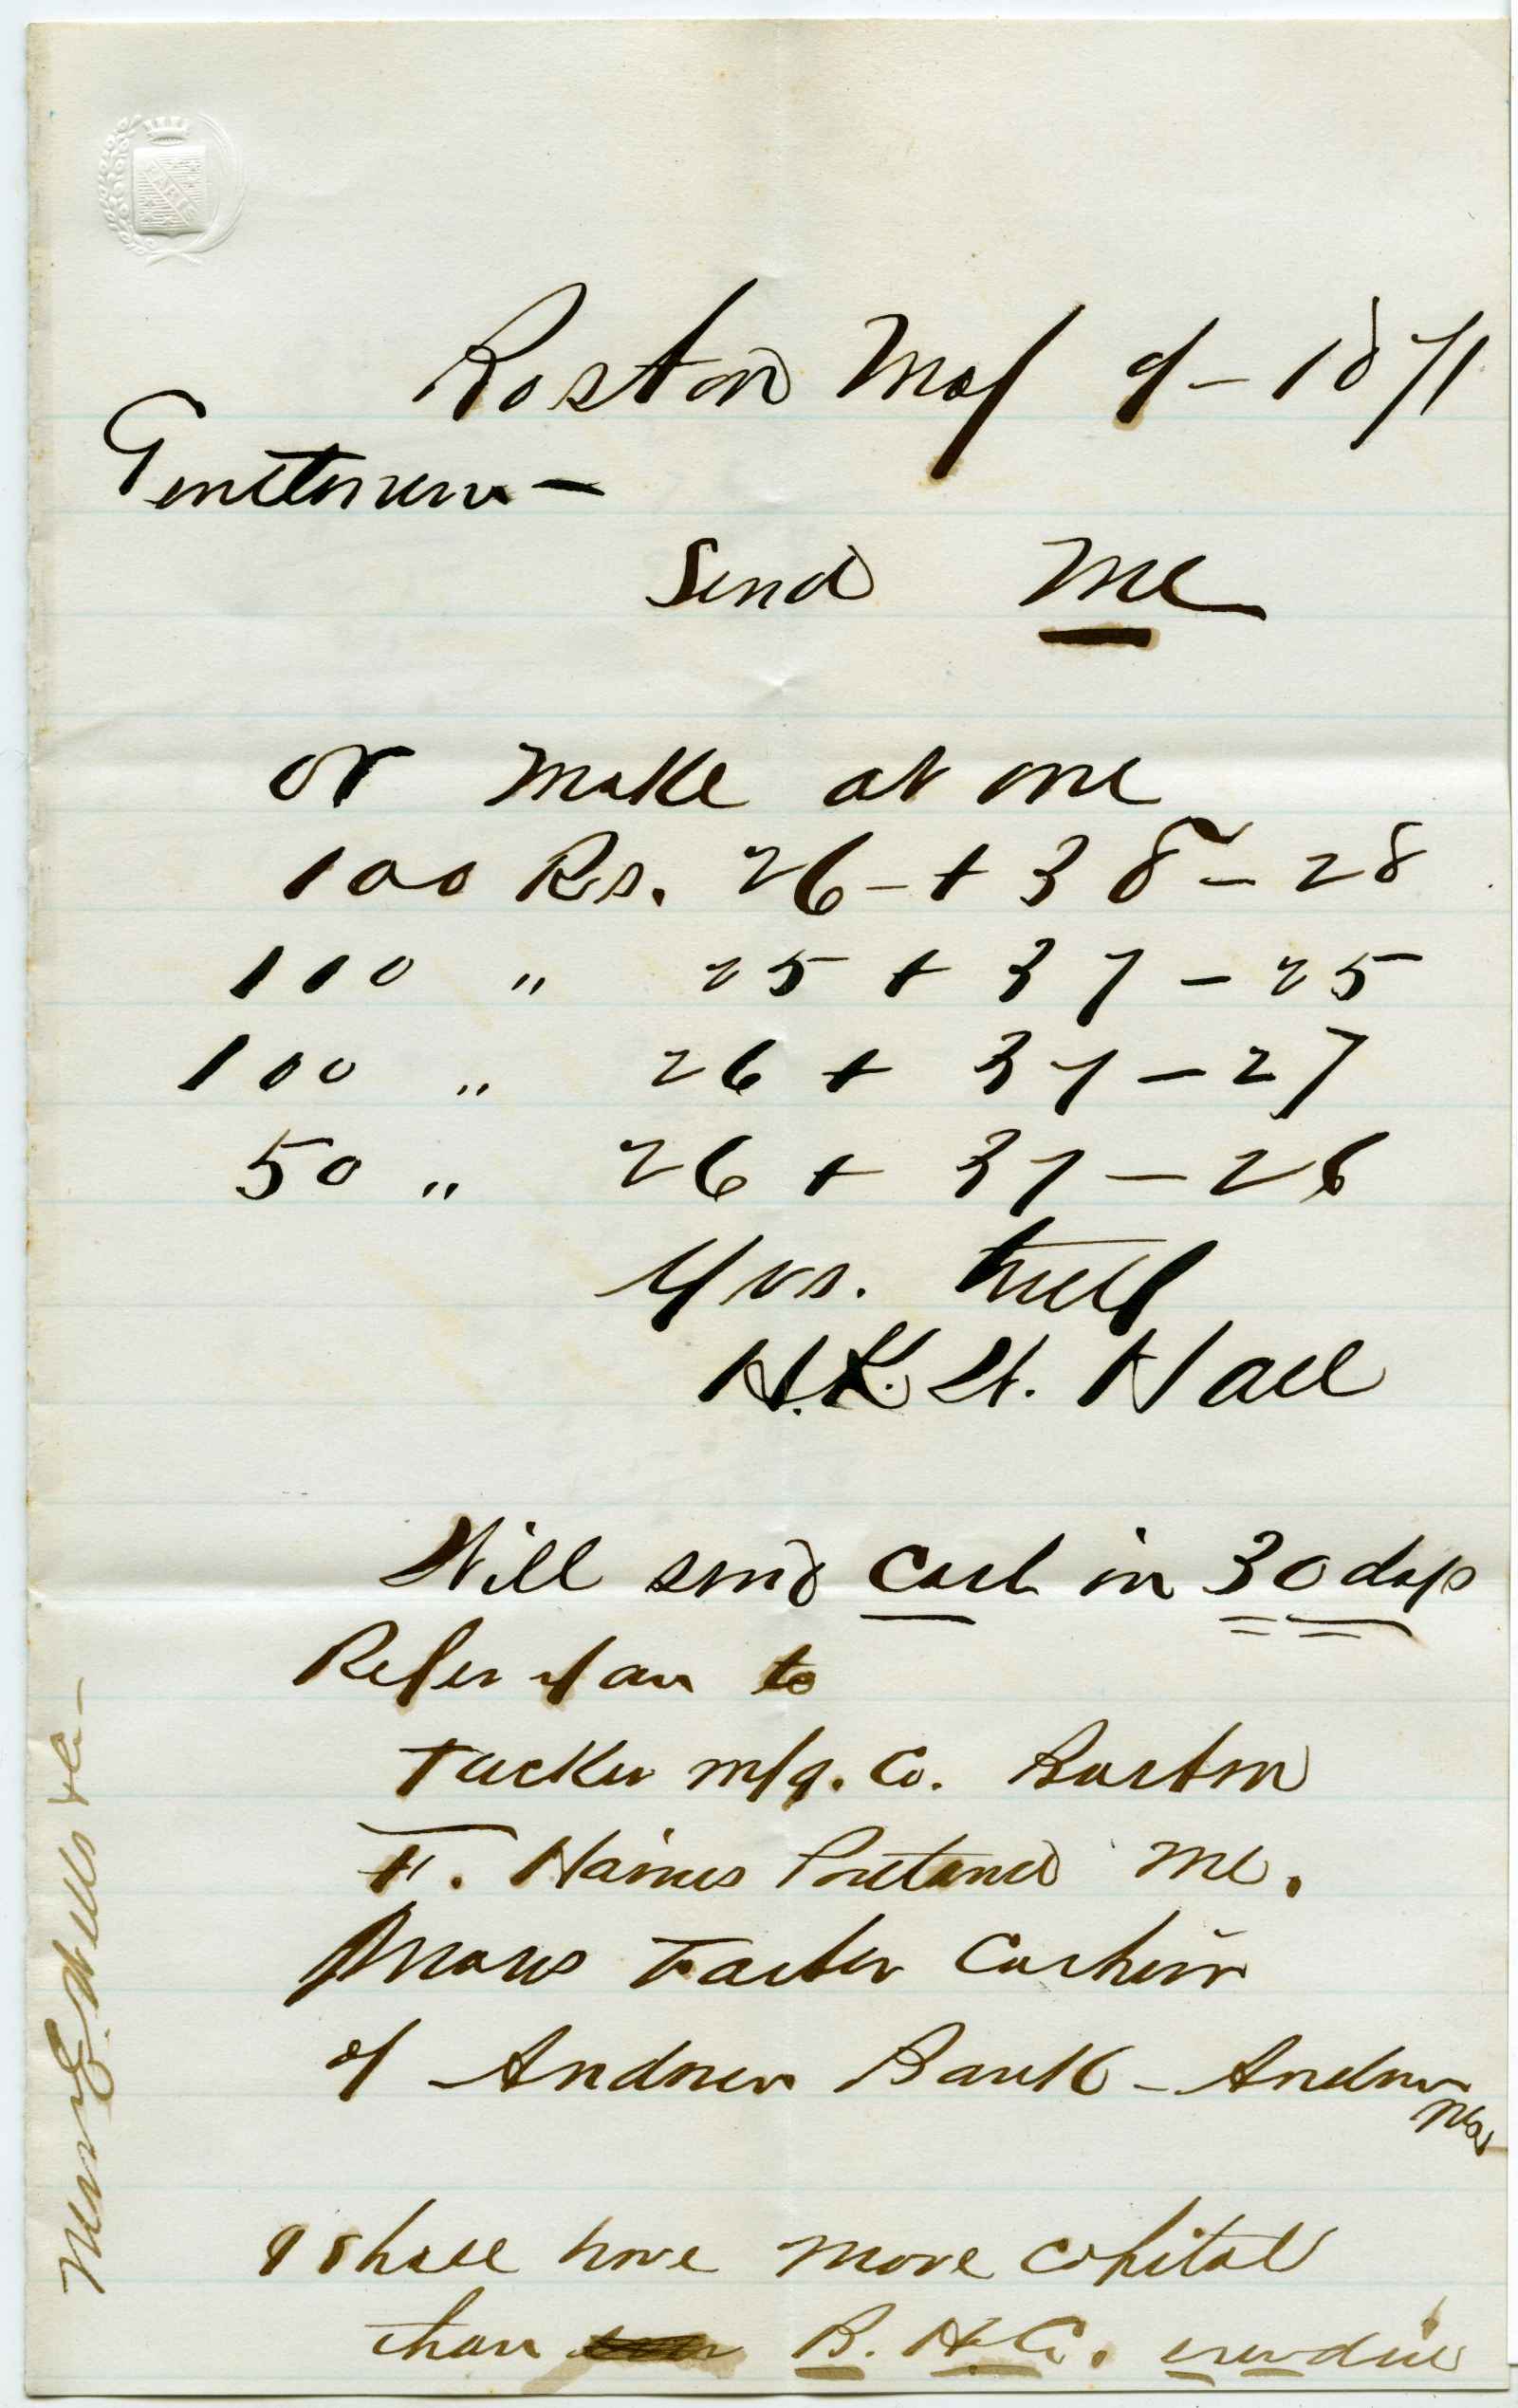 Boston May 9 - 1871
Gentlemen -
Send Me
or make at one
100 Rs. 26 - + 38 - 28
100 " 25 + 37 - 25
100 " 26 + 37 - 27
50 " 26 + 37 - 26
Yrs. truly
H.K.W. Hall
Will send Cash in 30 days
Refer you to
Tucker Mfg. Co. Boston
F. Haines Portland Me.
Foster Cashier
of Andover Bank - Andover
Mas
I shall have more capital
than B. H. & Co. ever did
Wells &c -